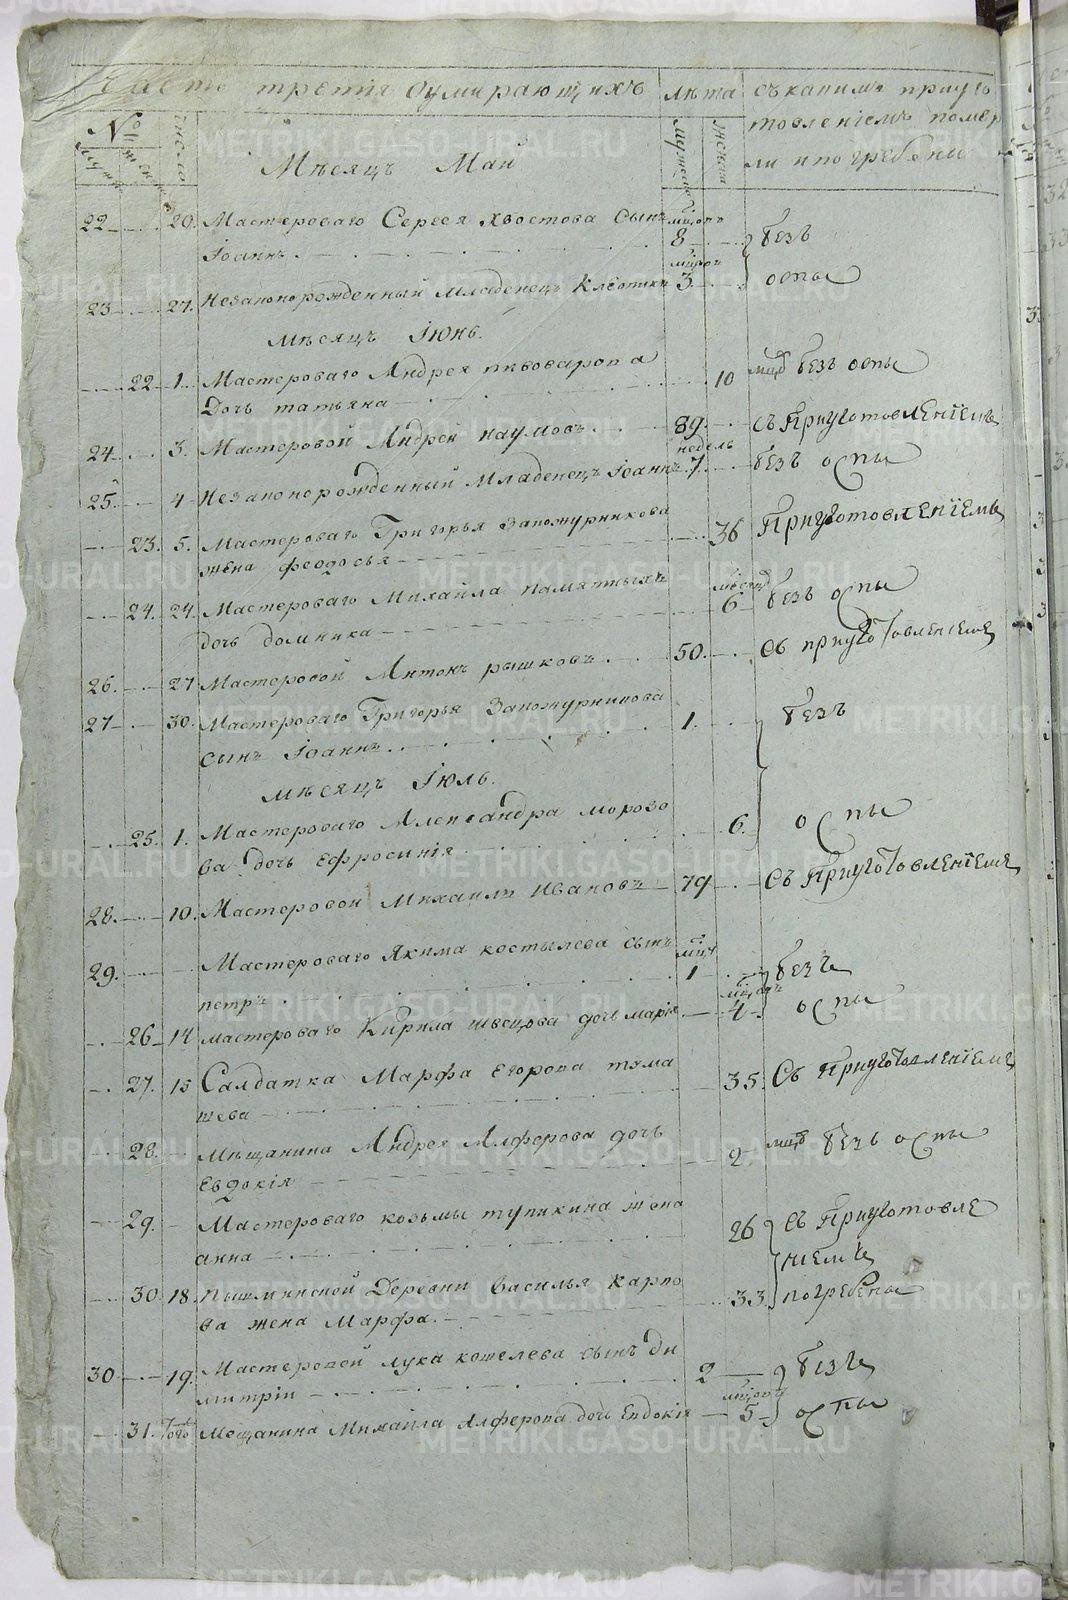 Часть третія оумирающихъ лѣта съ какимъ приуго
товленіемъ помер
ли и погребены
№ число мужеска женска
Мѣсяцъ Май
22 20. Мастероваго Сергея Хвостова сынъ
Іоаннъ 8 безъ
23 27. Незаконорожденный младенецъ 3 оспы
мѣсяцъ Іюнь.
22 1. Мастероваго Андрея пивоварова 10 безъ оспы
Дочь татьяна
24 3. Мастеровой Андрей наумовъ 89. съ Приуготовленіемъ
недель
25 4 Незаконорожденный Младенецъ Іоаннъ 7 безъ оспы
23. 5. Мастероваго Григорья 36 Приуготовленіемъ
жена феодосья
24. 24. Мастероваго Михайла памятныхъ 6 безъ оспы
дочь домника
26. 27 Мастеровой Антонъ рышковъ 50. съ приуготовленіемъ
27 30. Мастероваго Григорья 1. безъ
сынъ Іоаннъ
мѣсяцъ Іюль.
25. 1. Мастероваго Александра морозо 6. оспы
ва дочь Ефросинія
28. 10. Мастеровой Михаилъ Ивановъ 79 Съ Приуготовленіемъ
29. Мастероваго Якима костылева сынъ 1 безъ
петръ
26 14 мастероваго Кирила швецова дочь марія 4 оспы
27. 15 Салдатка Марфа Егорова тума 35. Съ Приуготовленіемъ
шева
28. Мѣщанина Андрея Алферова дочь 2 безъ оспы
Евдокія
29. Мастероваго козьмы тупикина жена 26 съ Приуготовле
анна ніемъ
30. 18. пышминской Деревни василья карпо 33. погребены
ва жена Марфа.
30 19. Мастеровой лука кошелева сынъ Ди 2 безъ
митрій
31. Того Мещанина Михайла Алферова дочь Евдокія 5 оспы
METRIKI.GASO-URAL.RU